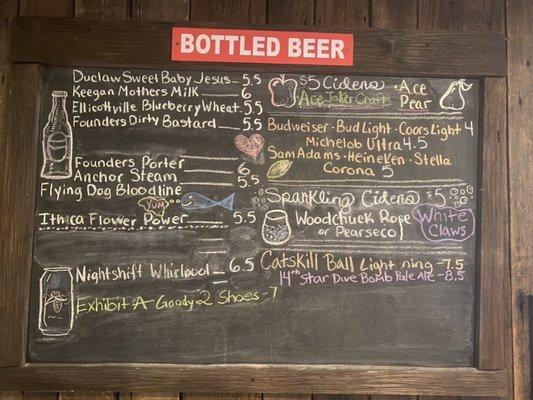 BOTTLED BEER
Duclaw Sweet Baby Jesus 5.5
Keegan Mothers Milk 6
Ellicottville Blueberry Wheat 5.5
Founders Dirty Bastard 5.5
Founders Porter 6
Anchor Steam 5.5
Flying Dog Bloodline 5.5
YUM
Ithaca Flower Power 5.5
Nightshift Whirlpool 6.5
Exhibit A Goody 2 Shoes - 7
$5 Ciders
Ace Joker Craft
Ace Pear
Budweiser · Bud Light · Coors Light 4
Michelob Ultra 4.5
Sam Adams · Heineken · Stella
Corona 5
Sparkling Ciders $5
Woodchuck Rope
or Pearsecc
White Claws
Catskill Ball Light ning - 7.5
14th Star Dive Bomb Pale Ale - 8.5